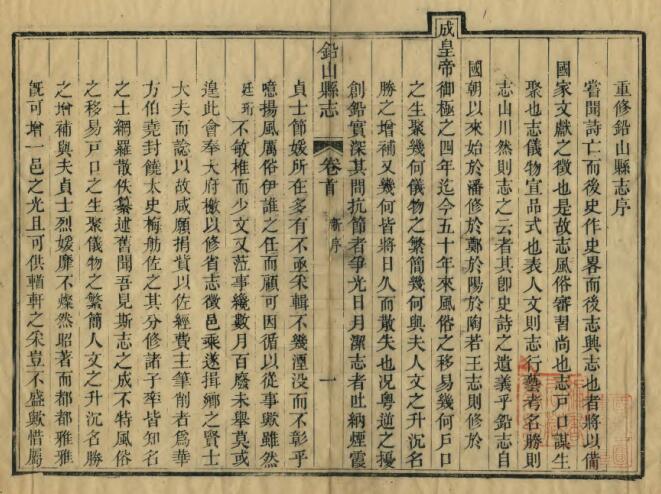 重修鉛山縣志序
嘗聞詩亡而後史作史畧而後志興志也者將以備
國家文獻之徵也是故志風俗審習尚也志戶口謀生
聚也志儀物宜品式也表人文則志行藝考名勝則
志山川然則志之云者其卽史詩之遺義乎鉛志自
國朝以來始於潘修於鄭於陽於陶若王志則修於
成皇帝御極之四年迄今五十年來風俗之移易幾何戶口
之生聚幾何儀物之繁簡幾何與夫人文之升沉名
勝之增補又幾何皆將日久而散失也況粵逆之擾
創鉛實深其間抗節者爭光日月潔志者吐納煙霞
鉛山縣志 卷首 新序 一
貞士節媛所在多有不亟采輯不幾湮没而不彰乎
噫揚風厲俗伊誰之任而顧可因循以從事歟雖然
廷珩不敏椎而少文又蒞事纔數月百廢未舉莫或
遑此會奉大府檄以修省志徵邑乘遂揖鄉之賢士
大夫而諗以故咸願捐貲以佐經費主筆削者爲華
方伯堯封饒太史梅舫佐之其分修諸子率皆知名
之士網羅散佚纂述舊聞吾見斯志之成不特風俗
之移易戶口之生聚儀物之繁簡人文之升沉名勝
之增補與夫貞士烈媛靡不燦然昭著而都都雅雅
旣可增一邑之光且可供輶軒之采豈不盛歟惜屬